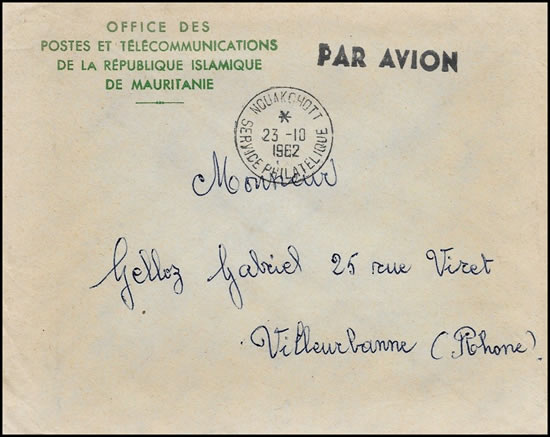 OFFICE DES
POSTES ET TÉLÉCOMMUNICATIONS
DE LA RÉPUBLIQUE ISLAMIQUE
DE MAURITANIE
PAR AVION
NOUAKCHOTT
*
23 -10
1962
SERVICE PHILATELIQUE
Monsieur
Gelloz Gabriel 25 rue Viret
Villeurbanne (Rhone)